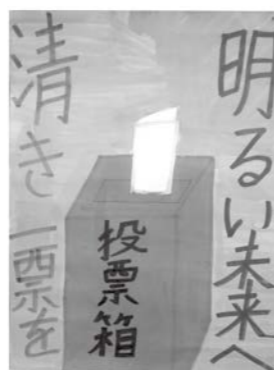 明るい未来へ
投票箱
清き一票を